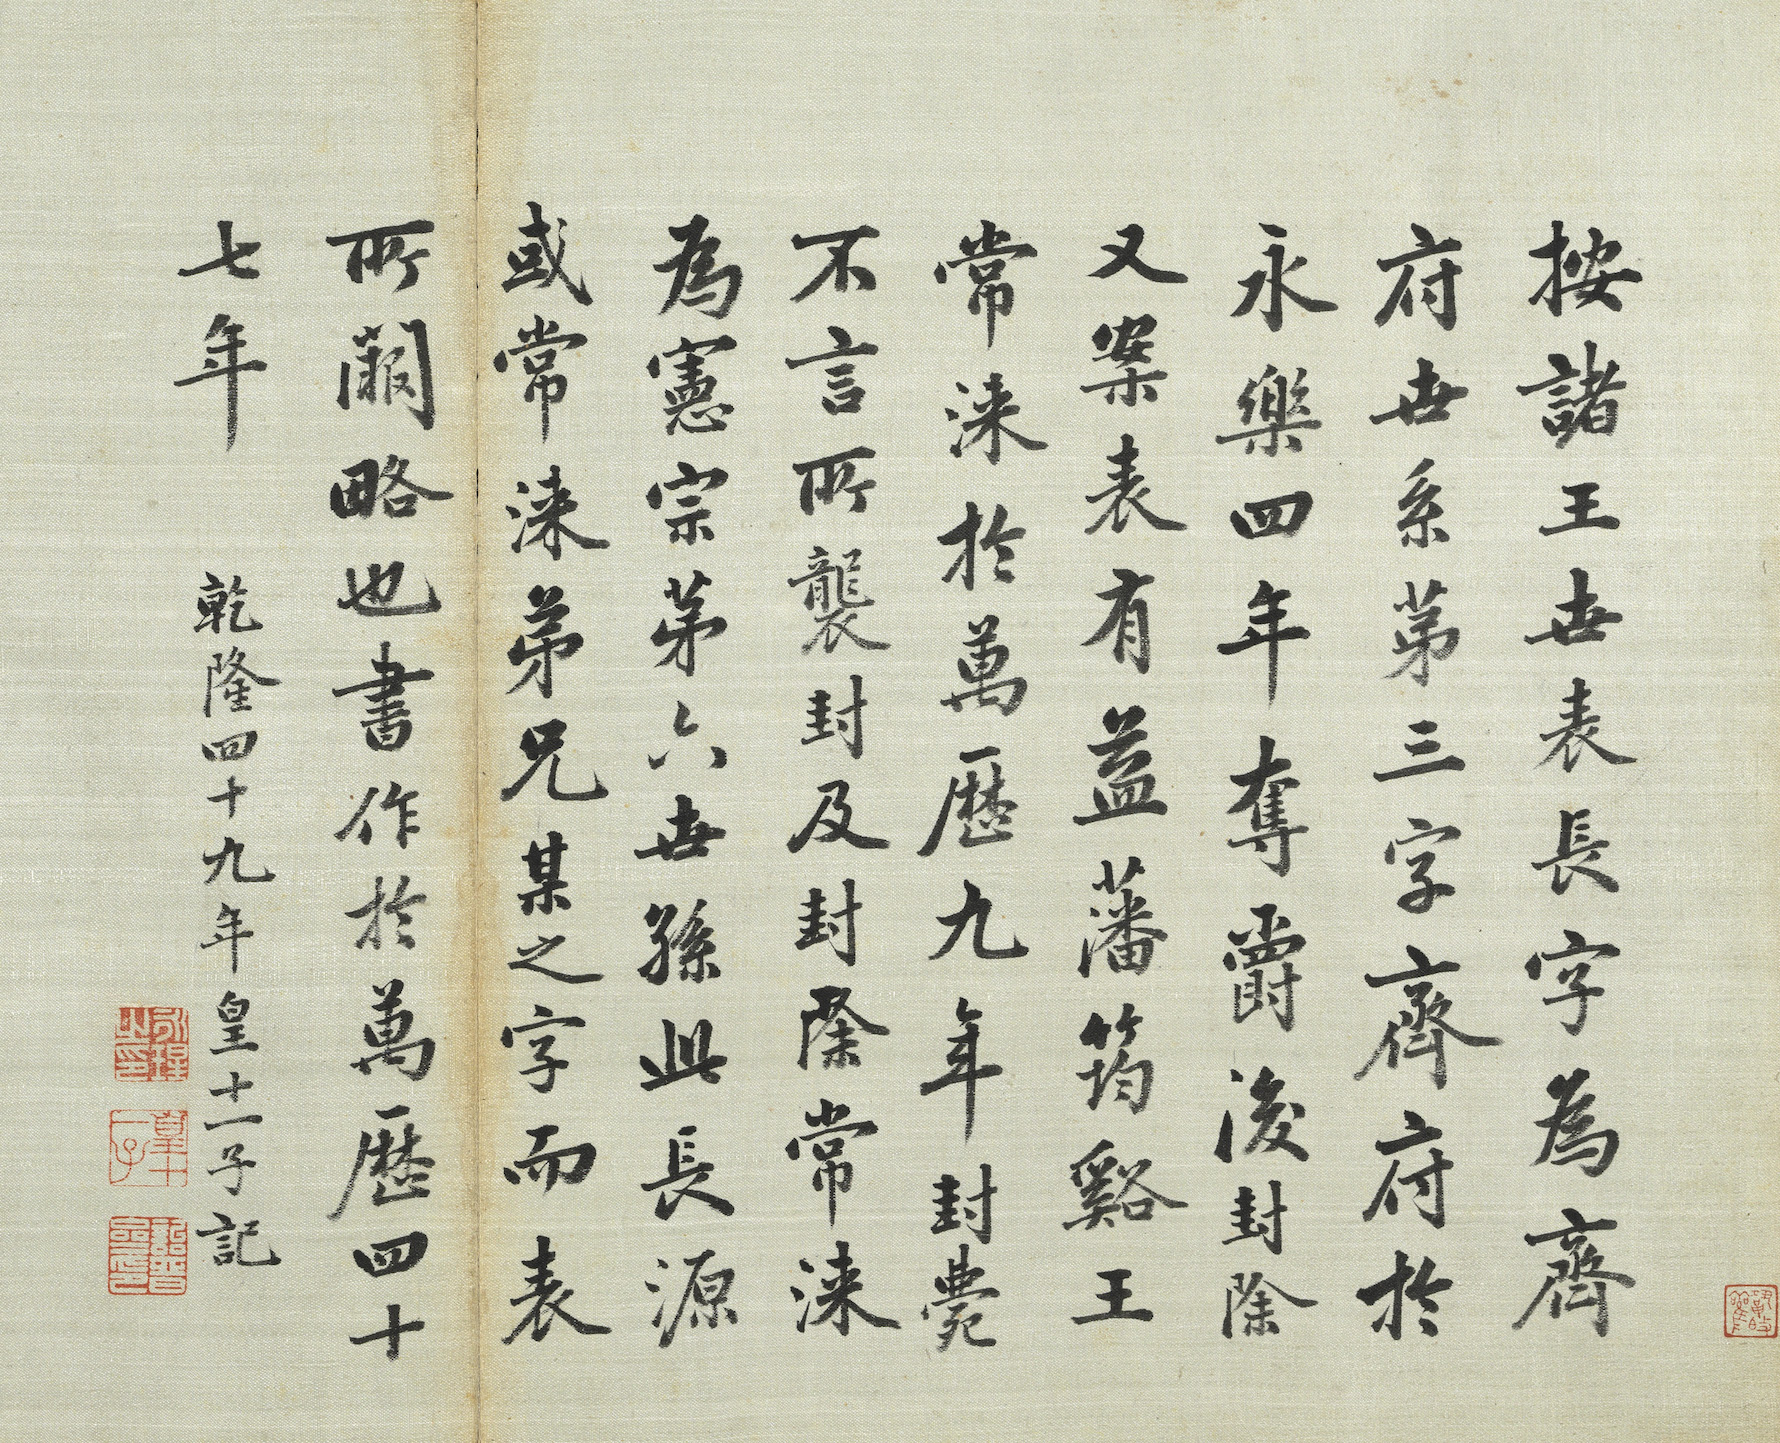 按諸王世表長字為齊
府世系第三字齊府於
永樂四年奪爵後封除
又案表有益藩筠谿王
常淶於萬歷九年封薨
不言所襲封及封除常淶
為憲宗苐六世孫此長源
或常淶弟兄某之字而表
所闕略也書作於萬歷四十
七年 乾隆四十九年皇十一子記
永瑆之印
皇十一子